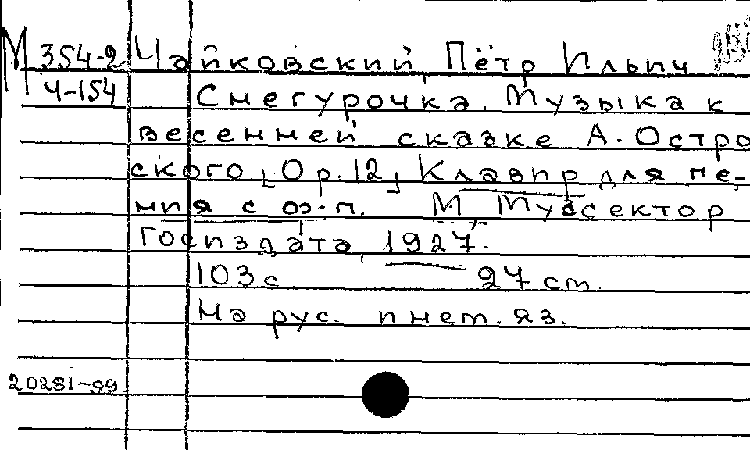 М 354-2 Чайковский, Пётр Ильич
Ч-154 Снегурочка. Музыка к
весенней сказке А. Остро
ского [Ор. 12] Клавир для пе-
ния с ф-п. М Музсектор
Госиздата, 1927.
103 с 27 cm.
На рус. и нем. яз.
20281-99